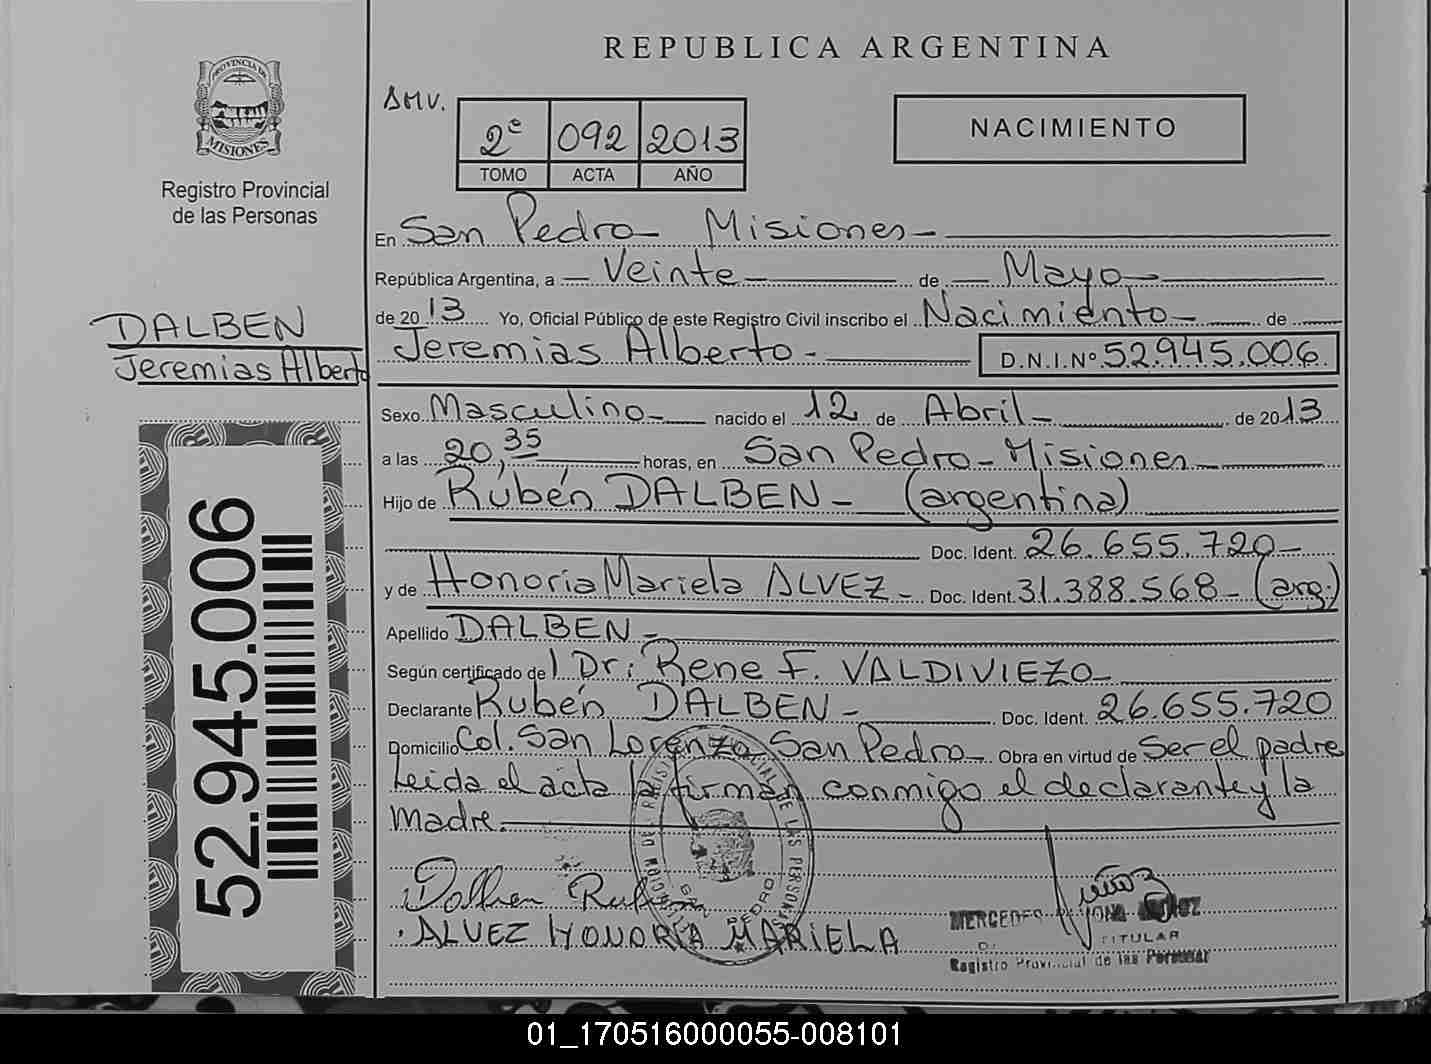 REPUBLICA ARGENTINA
PROVINCIA DE
MISIONES
Registro Provincial
de las Personas
SMV.
2º 092 2013
TOMO ACTA AÑO
NACIMIENTO
En San Pedro - Misiones -
República Argentina, a - Veinte - de - Mayo -
de 2013 Yo, Oficial Público de este Registro Civil inscribo el Nacimiento - de
Jeremias Alberto - D.N.I.Nº 52.945.006
DALBEN
Jeremias Alberto
Sexo Masculino - nacido el 12 de Abril - de 2013
a las 20,35 horas, en San Pedro - Misiones -
Hijo de Rúbén DALBEN - (argentina)
Doc. Ident. 26.655.720 -
y de Honoria Mariela ALVEZ - Doc. Ident. 31.388.568 - (arg.)
Apellido DALBEN -
Según certificado del Dr: Rene F. VALDIVIEZO -
Declarante Rubén DALBEN - Doc. Ident. 26.655.720
Domicilio Col. San Lorenzo San Pedro - Obra en virtud de Ser el padre
Leida el acta la firman conmigo el declarante y la
Madre. -
Dalben Ruben
ALVEZ HONORIA MARIELA
MERCEDES RAMONA
TITULAR
Registro Provincial de las Personas
DE LAS PERSONAS
PEDRO
52.945.006
01_170516000055-008101